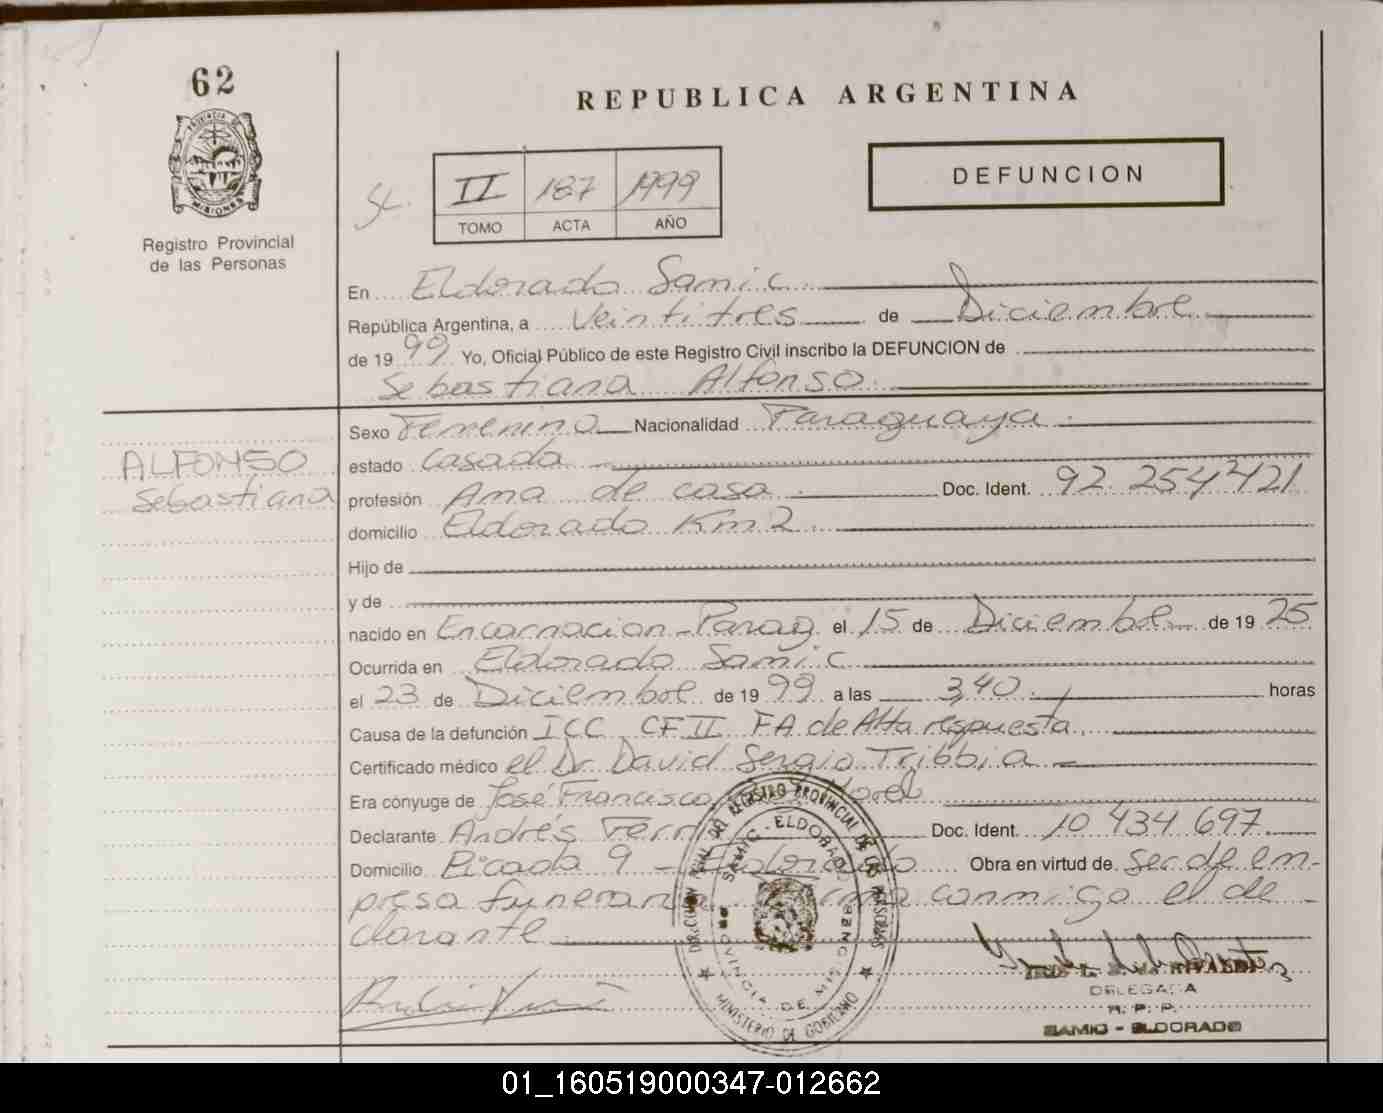 62
REPUBLICA ARGENTINA
PROVINCIA DE
MISIONES
Registro Provincial
de las Personas
II 187 1999
TOMO ACTA AÑO
DEFUNCION
En Eldorado Samic
República Argentina, a Veintitres de Diciembre
de 19 99 Yo, Oficial Público de este Registro Civil inscribo la DEFUNCION de
Sebastiana Alfonso
Sexo Femenino Nacionalidad Paraguaya
ALFONSO
Sebastiana
estado Casada
profesión Ama de casa Doc. Ident. 92.254421
domicilio Eldorado Km 2
Hijo de
y de
nacido en Encarnacion - Parag el 15 de Diciembre de 19 25
Ocurrida en Eldorado Samic
el 23 de Diciembre de 19 99 a las 3,40 horas
Causa de la defunción ICC CF II FA de Alta respuesta
Certificado médico el Dr David Sergio Tribbia
Era cónyuge de José Francisco
Declarante Andrés Doc. Ident. 10 434 697
Domicilio Picada 9 - Eldorado Obra en virtud de Ser de em-
presa funeraria firma conmigo el de-
clarante
DEL REGISTRO PROVINCIAL DE LAS PERSONAS
SAMIC - ELDORADO
PROVINCIA DE MISIONES
MINISTERIO DE GOBIERNO
DELEGADA
R. P. P.
SAMIC - ELDORADO
01_160519000347-012662